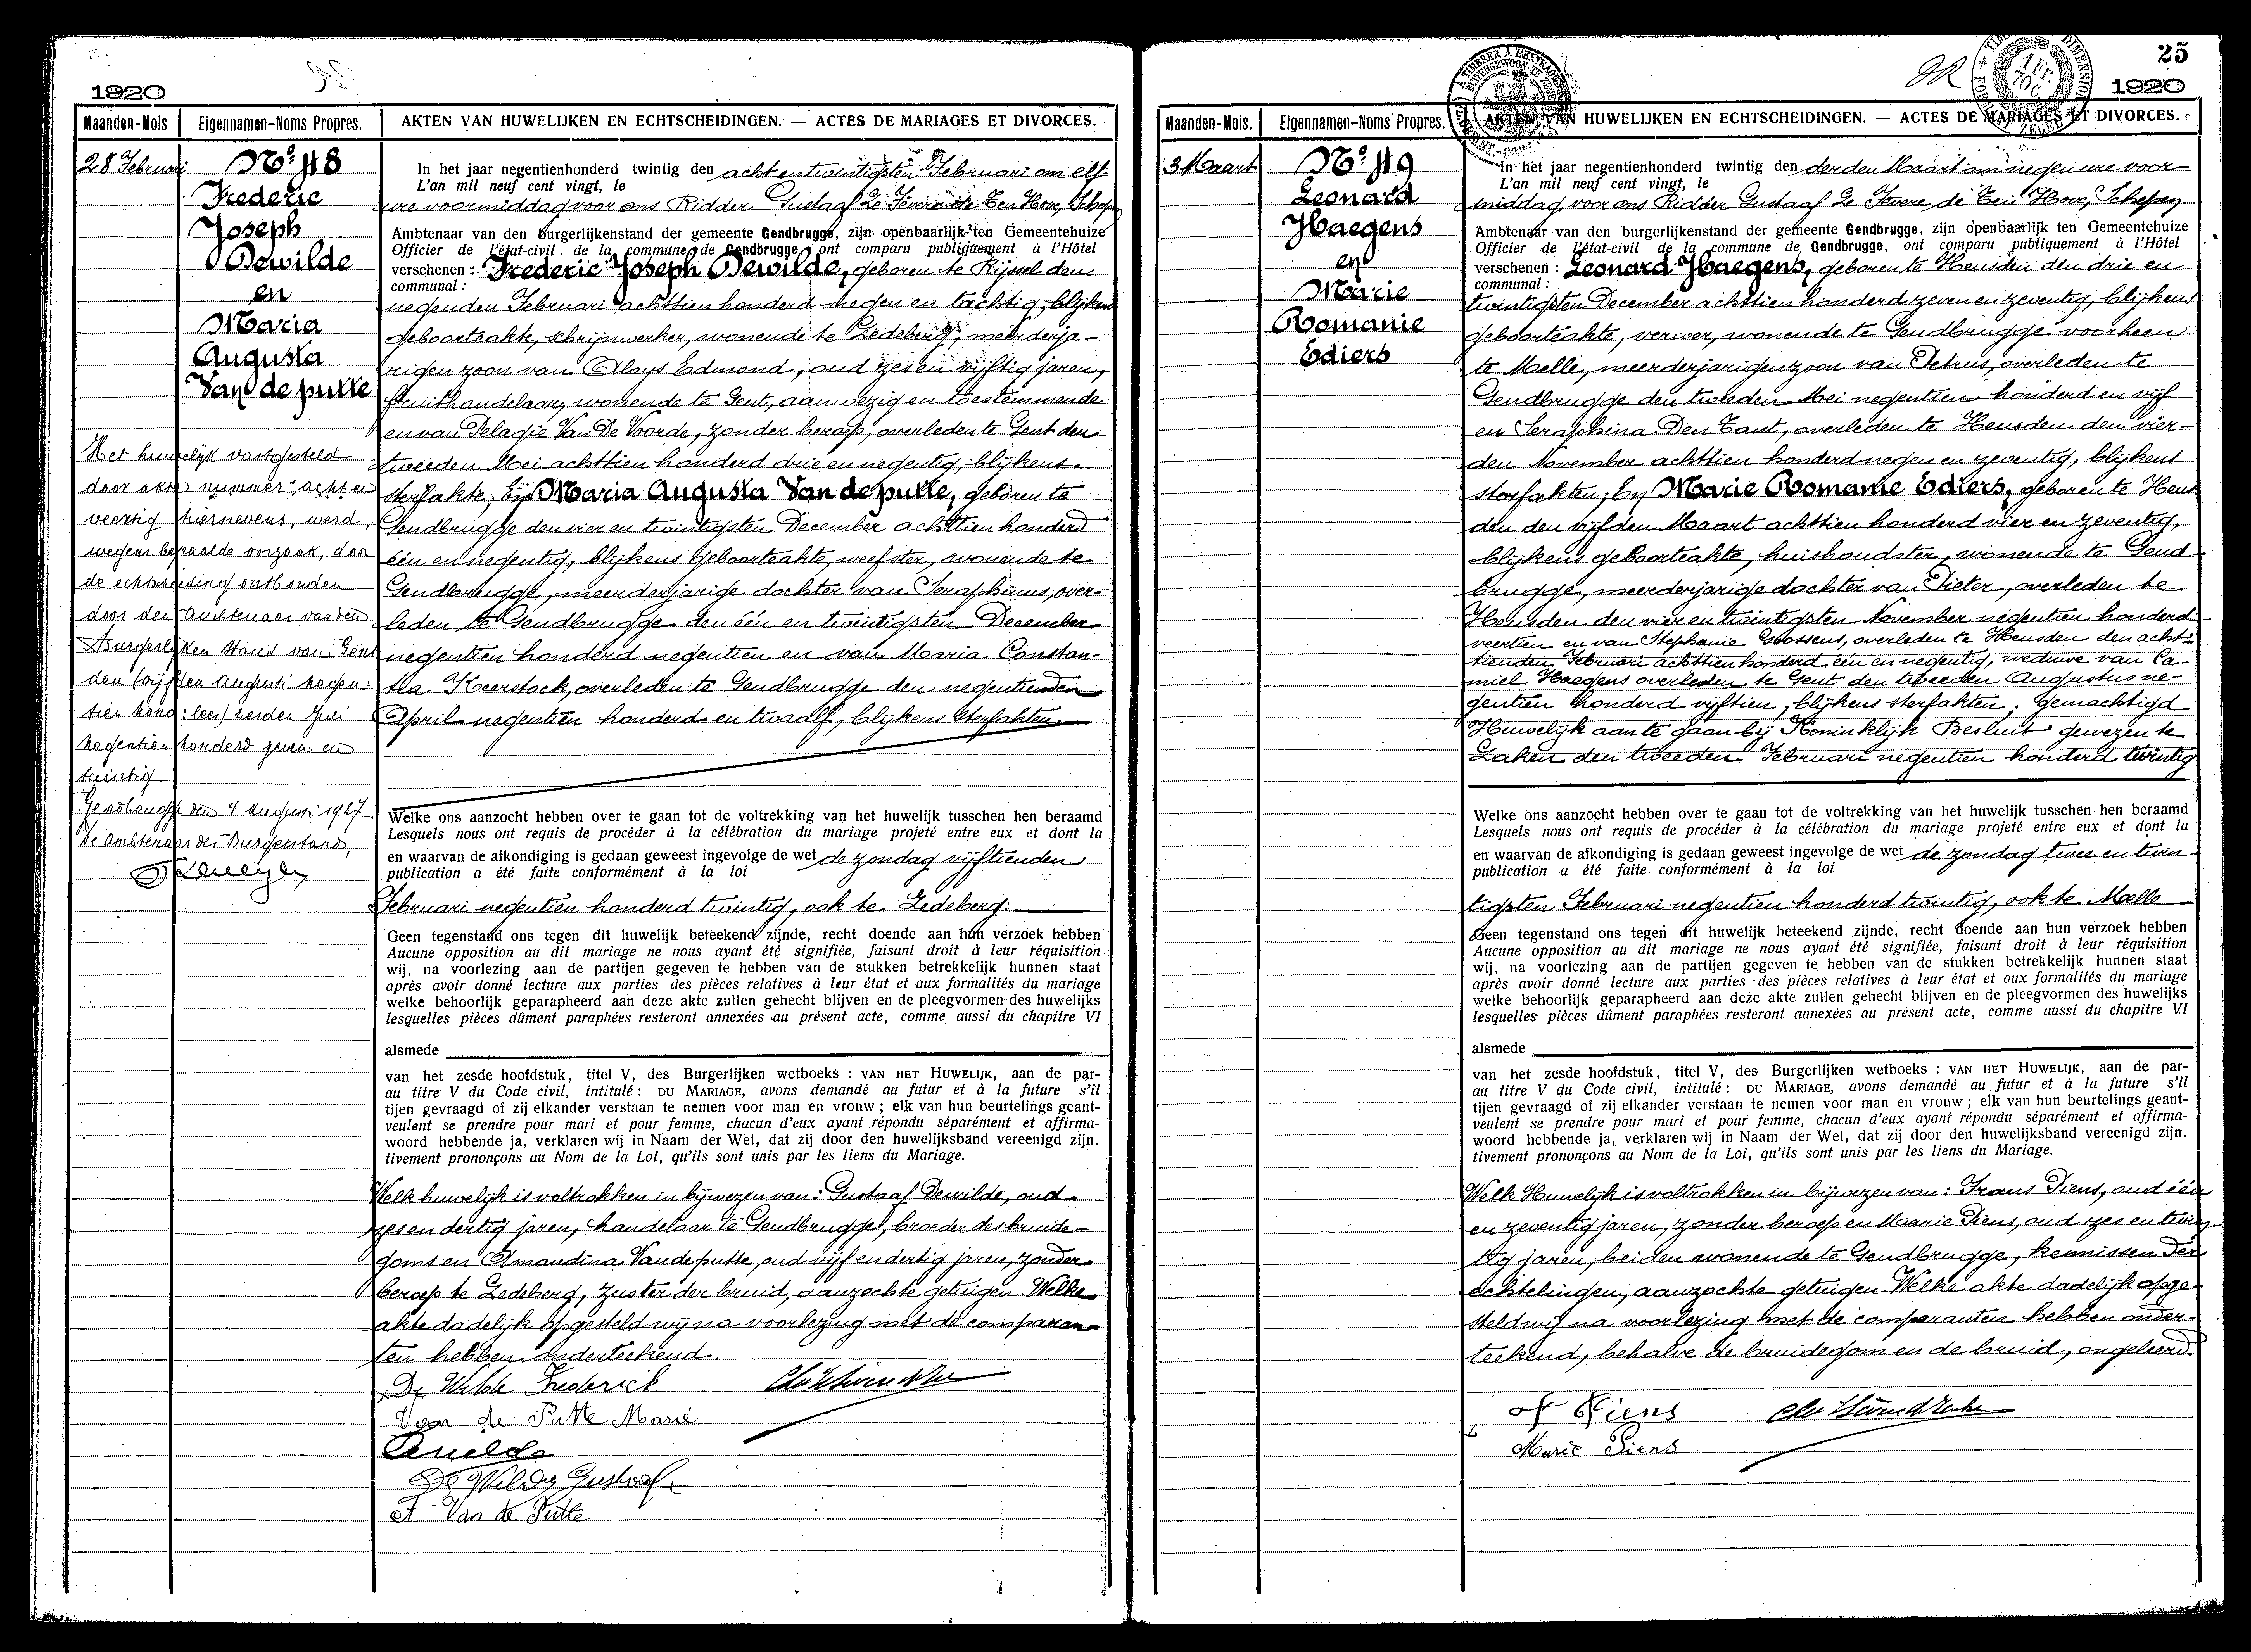 1920
Maanden-Mois
Eigennamen-Noms Propres.
AKTEN VAN HUWELIJKEN EN ECHTSCHEIDINGEN. — ACTES DE MARIAGES ET DIVORCES.
28 Februari
No. 48
Frederic
Joseph
Dewilde
en
Maria
Augusta
Van de putte
Het huwelijk vastgesteld
door akte nummer acht en
veertig hiernevens, werd,
wegens bepaalde oorzaak, door
de echtscheiding ontbonden
door den Ambtenaar van den
Burgerlijken Stand van Gent
den (vijfden Augusti negen-
tien hond: lees) derden Juli
negentien honderd zeven en
twintig.
Gendbrugge den 4 Augusti 1927.
De Ambtenaar des Burgerstands,
In het jaar negentienhonderd twintig den acht en twintigsten Februari om elf
L'an mil neuf cent vingt, le
ure voormiddag voor ons Ridder Gustaaf Le Fevere de Ten Hove, Schepen
Ambtenaar van den burgerlijkenstand der gemeente Gendbrugge, zijn openbaarlijk ten Gemeentehuize
Officier de l'état-civil de la commune de Gendbrugge, ont comparu publiquement à l'Hôtel
verschenen : Frederic Joseph Dewilde, geboren te Rijssel den
communal :
negenden Februari achttien honderd negen en tachtig, blijkens
geboorteakte, schrijnwerker, wonende te Ledeberg, meerderja-
rigen zoon van Aloys Edmond, oud zes en vijftig jaren,
fruithandelaar, wonende te Gent, aanwezig en toestemmende
en van Pelagie Van De Voorde, zonder beroep, overleden te Gent den
tweeden Mei achttien honderd drie en negentig, blijkens
sterfakte, bij Maria Augusta Van de putte, geboren te
Gendbrugge den vier en twintigsten December achttien honderd
één en negentig, blijkens geboorteakte, weefster, wonende te
Gendbrugge, meerderjarige dochter van Seraphinus, over-
leden te Gendbrugge den één en twintigsten December
negentien honderd negentien en van Maria Constan-
tia Keerstock, overleden te Gendbrugge den negentienden
April negentien honderd en twaalf, blijkens sterfakten.
Welke ons aanzocht hebben over te gaan tot de voltrekking van het huwelijk tusschen hen beraamd
Lesquels nous ont requis de procéder à la célébration du mariage projeté entre eux et dont la
en waarvan de afkondiging is gedaan geweest ingevolge de wet de zondag vijftienden
publication a été faite conformément à la loi
Februari negentien honderd twintig, ook te Ledeberg.
Geen tegenstand ons tegen dit huwelijk beteekend zijnde, recht doende aan hun verzoek hebben
Aucune opposition au dit mariage ne nous ayant été signifiée, faisant droit à leur réquisition
wij, na voorlezing aan de partijen gegeven te hebben van de stukken betrekkelijk hunnen staat
après avoir donné lecture aux parties des pièces relatives à leur état et aux formalités du mariage
welke behoorlijk geparapheerd aan deze akte zullen gehecht blijven en de pleegvormen des huwelijks
lesquelles pièces dûment paraphées resteront annexées au présent acte, comme aussi du chapitre VI
alsmede
van het zesde hoofdstuk, titel V, des Burgerlijken wetboeks : VAN HET HUWELIJK, aan de par-
au titre V du Code civil, intitulé : DU MARIAGE, avons demandé au futur et à la future s'il
tijen gevraagd of zij elkander verstaan te nemen voor man en vrouw ; elk van hun beurtelings geant-
veulent se prendre pour mari et pour femme, chacun d'eux ayant répondu séparément et affirma-
woord hebbende ja, verklaren wij in Naam der Wet, dat zij door den huwelijksband vereenigd zijn.
tivement prononçons au Nom de la Loi, qu'ils sont unis par les liens du Mariage.
Welk huwelijk is voltrokken in bijwezen van : Gustaaf Dewilde, oud
zes en dertig jaren, handelaar te Gendbrugge, broeder des bruide-
goms en Amandina Vandeputte, oud vijf en dertig jaren, zonder
beroep te Ledeberg, zuster der bruid, aanzochte getuigen. Welke
akte dadelijk opgesteld wij na voorlezing met de comparan-
ten hebben onderteekend.
De Wilde Frederick
Van de Putte Marie
De Wilde Gustaaf
A Van de Putte
25
1920
Maanden-Mois.
Eigennamen-Noms Propres.
AKTEN VAN HUWELIJKEN EN ECHTSCHEIDINGEN. — ACTES DE MARIAGES ET DIVORCES.
3 Maart
No. 49
Leonard
Haegens
en
Marie
Romanie
Ediers
In het jaar negentienhonderd twintig den derden Maart om negen ure voor-
L'an mil neuf cent vingt, le
middag voor ons Ridder Gustaaf Le Fevere de Ten Hove, Schepen
Ambtenaar van den burgerlijkenstand der gemeente Gendbrugge, zijn openbaarlijk ten Gemeentehuize
Officier de l'état-civil de la commune de Gendbrugge, ont comparu publiquement à l'Hôtel
verschenen : Leonard Haegens, geboren te Heusden den drie en
communal :
twintigsten December achttien honderd zeven en zeventig, blijkens
geboorteakte, verwer, wonende te Gendbrugge voorheen
te Melle, meerderjarigen zoon van Petrus, overleden te
Gendbrugge den tweeden Mei negentien honderd en vijf
en Seraphina Den Tant, overleden te Heusden den vier-
den November achttien honderd negen en zeventig, blijkens
sterfakten, bij Marie Romanie Ediers, geboren te Heus
den den vijfden Maart achttien honderd vier en zeventig,
blijkens geboorteakte, huishoudster, wonende te Gend-
brugge, meerderjarige dochter van Pieter, overleden te
Heusden den vier en twintigsten November negentien honderd
veertien en van Stephanie Goossens, overleden te Heusden den acht-
tienden Februari achttien honderd één en negentig, weduwe van Ca-
miel Haegens overleden te Gent den tweeden Augustus ne-
gentien honderd vijftien, blijkens sterfakten, gemachtigd
Huwelijk aan te gaan bij Koninklijk Besluit gewezen te
Laken den tweeden Februari negentien honderd twintig
Welke ons aanzocht hebben over te gaan tot de voltrekking van het huwelijk tusschen hen beraamd
Lesquels nous ont requis de procéder à la célébration du mariage projeté entre eux et dont la
en waarvan de afkondiging is gedaan geweest ingevolge de wet de zondag twee en twin-
publication a été faite conformément à la loi
tigsten Februari negentien honderd twintig, ook te Melle
Geen tegenstand ons tegen dit huwelijk beteekend zijnde, recht doende aan hun verzoek hebben
Aucune opposition au dit mariage ne nous ayant été signifiée, faisant droit à leur réquisition
wij, na voorlezing aan de partijen gegeven te hebben van de stukken betrekkelijk hunnen staat
après avoir donné lecture aux parties des pièces relatives à leur état et aux formalités du mariage
welke behoorlijk geparapheerd aan deze akte zullen gehecht blijven en de pleegvormen des huwelijks
lesquelles pièces dûment paraphées resteront annexées au présent acte, comme aussi du chapitre VI
alsmede
van het zesde hoofdstuk, titel V, des Burgerlijken wetboeks : VAN HET HUWELIJK, aan de par-
au titre V du Code civil, intitulé : DU MARIAGE, avons demandé au futur et à la future s'il
tijen gevraagd of zij elkander verstaan te nemen voor man en vrouw ; elk van hun beurtelings geant-
veulent se prendre pour mari et pour femme, chacun d'eux ayant répondu séparément et affirma-
woord hebbende ja, verklaren wij in Naam der Wet, dat zij door den huwelijksband vereenigd zijn.
tivement prononçons au Nom de la Loi, qu'ils sont unis par les liens du Mariage.
Welk Huwelijk is voltrokken in bijwezen van : Frans Piens, oud één
en zeventig jaren, zonder beroep en Maarie Piens, oud zes en twin-
tig jaren, beiden wonende te Gendbrugge, kennissen der
echtelingen, aanzochte getuigen. Welke akte dadelijk opge-
steld wij na voorlezing met de comparanten hebben onder-
teekend, behalve de bruidegom en de bruid, ongeleerd.
F Piens
Marie Piens